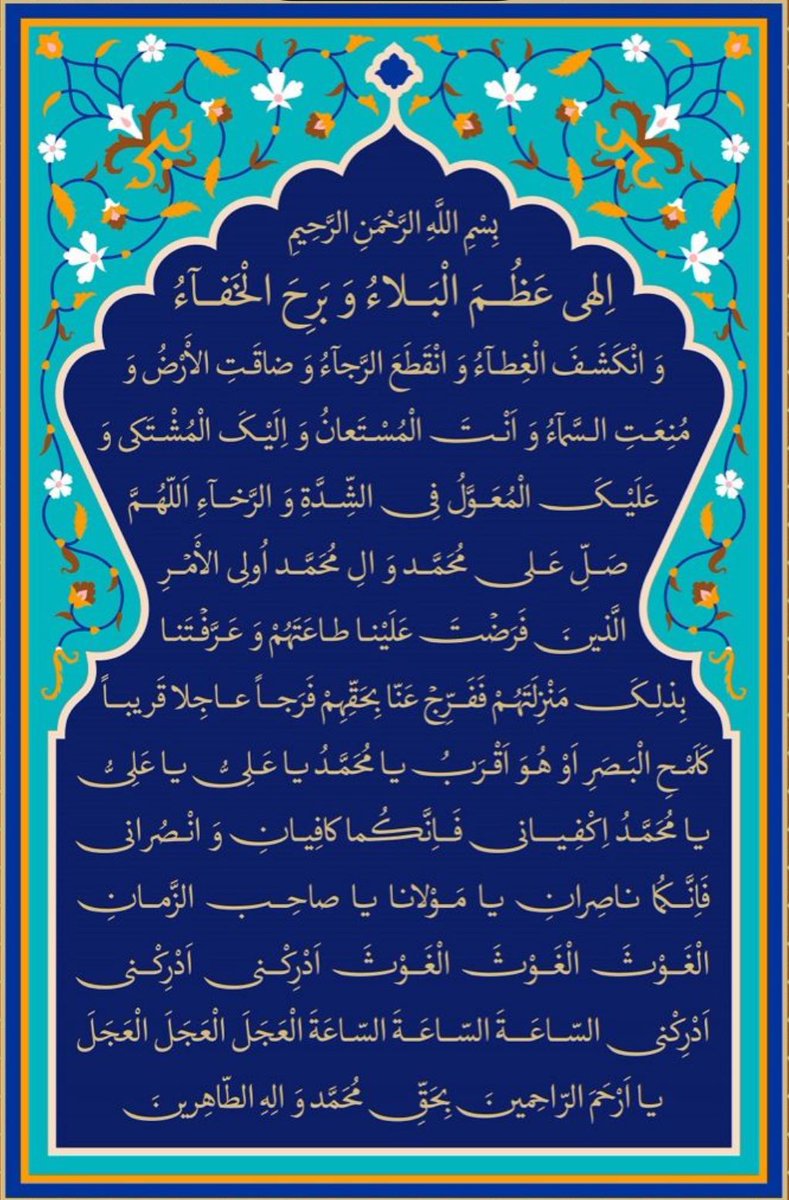 بِسْمِ اللَّهِ الرَّحْمَنِ الرَّحِيمِ
اِلهى عَظُمَ الْبَلاءُ وَ بَرِحَ الْخَفآءُ
وَ انْكَشَفَ الْغِطآءُ وَ انْقَطَعَ الرَّجآءُ وَ ضاقَتِ الأَرْضُ وَ
مُنِعَتِ السَّمآءُ وَ اَنْتَ الْمُسْتَعانُ وَ اِلَيْکَ الْمُشْتَکى وَ
عَلَيْکَ الْمُعَوَّلُ فِى الشِّدَّةِ وَ الرَّخآءِ اَللّهُمَّ
صَلِّ عَلى مُحَمَّد وَ الِ مُحَمَّد اُولِى الأَمْرِ
الَّذينَ فَرَضْتَ عَلَيْنا طاعَتَهُمْ وَ عَرَّفْتَنا
بِذلِکَ مَنْزِلَتَهُمْ فَفَرِّجْ عَنّا بِحَقِّهِمْ فَرَجاً عاجِلا قَريباً
كَلَمْحِ الْبَصَرِ اَوْ هُوَ اَقْرَبُ يا مُحَمَّدُ يا عَلِىُّ يا عَلِىُّ
يا مُحَمَّدُ اِكْفِيانى فَاِنَّكُما كافِيانِ وَ انْصُرانى
فَاِنَّكُما ناصِرانِ يا مَوْلانا يا صاحِبَ الزَّمانِ
الْغَوْثَ الْغَوْثَ الْغَوْثَ اَدْرِكْنى اَدْرِكْنى
اَدْرِكْنى السّاعَةَ السّاعَةَ السّاعَةَ الْعَجَلَ الْعَجَلَ الْعَجَلَ
يا اَرْحَمَ الرّاحِمينَ بِحَقِّ مُحَمَّد وَ الِهِ الطّاهِرينَ